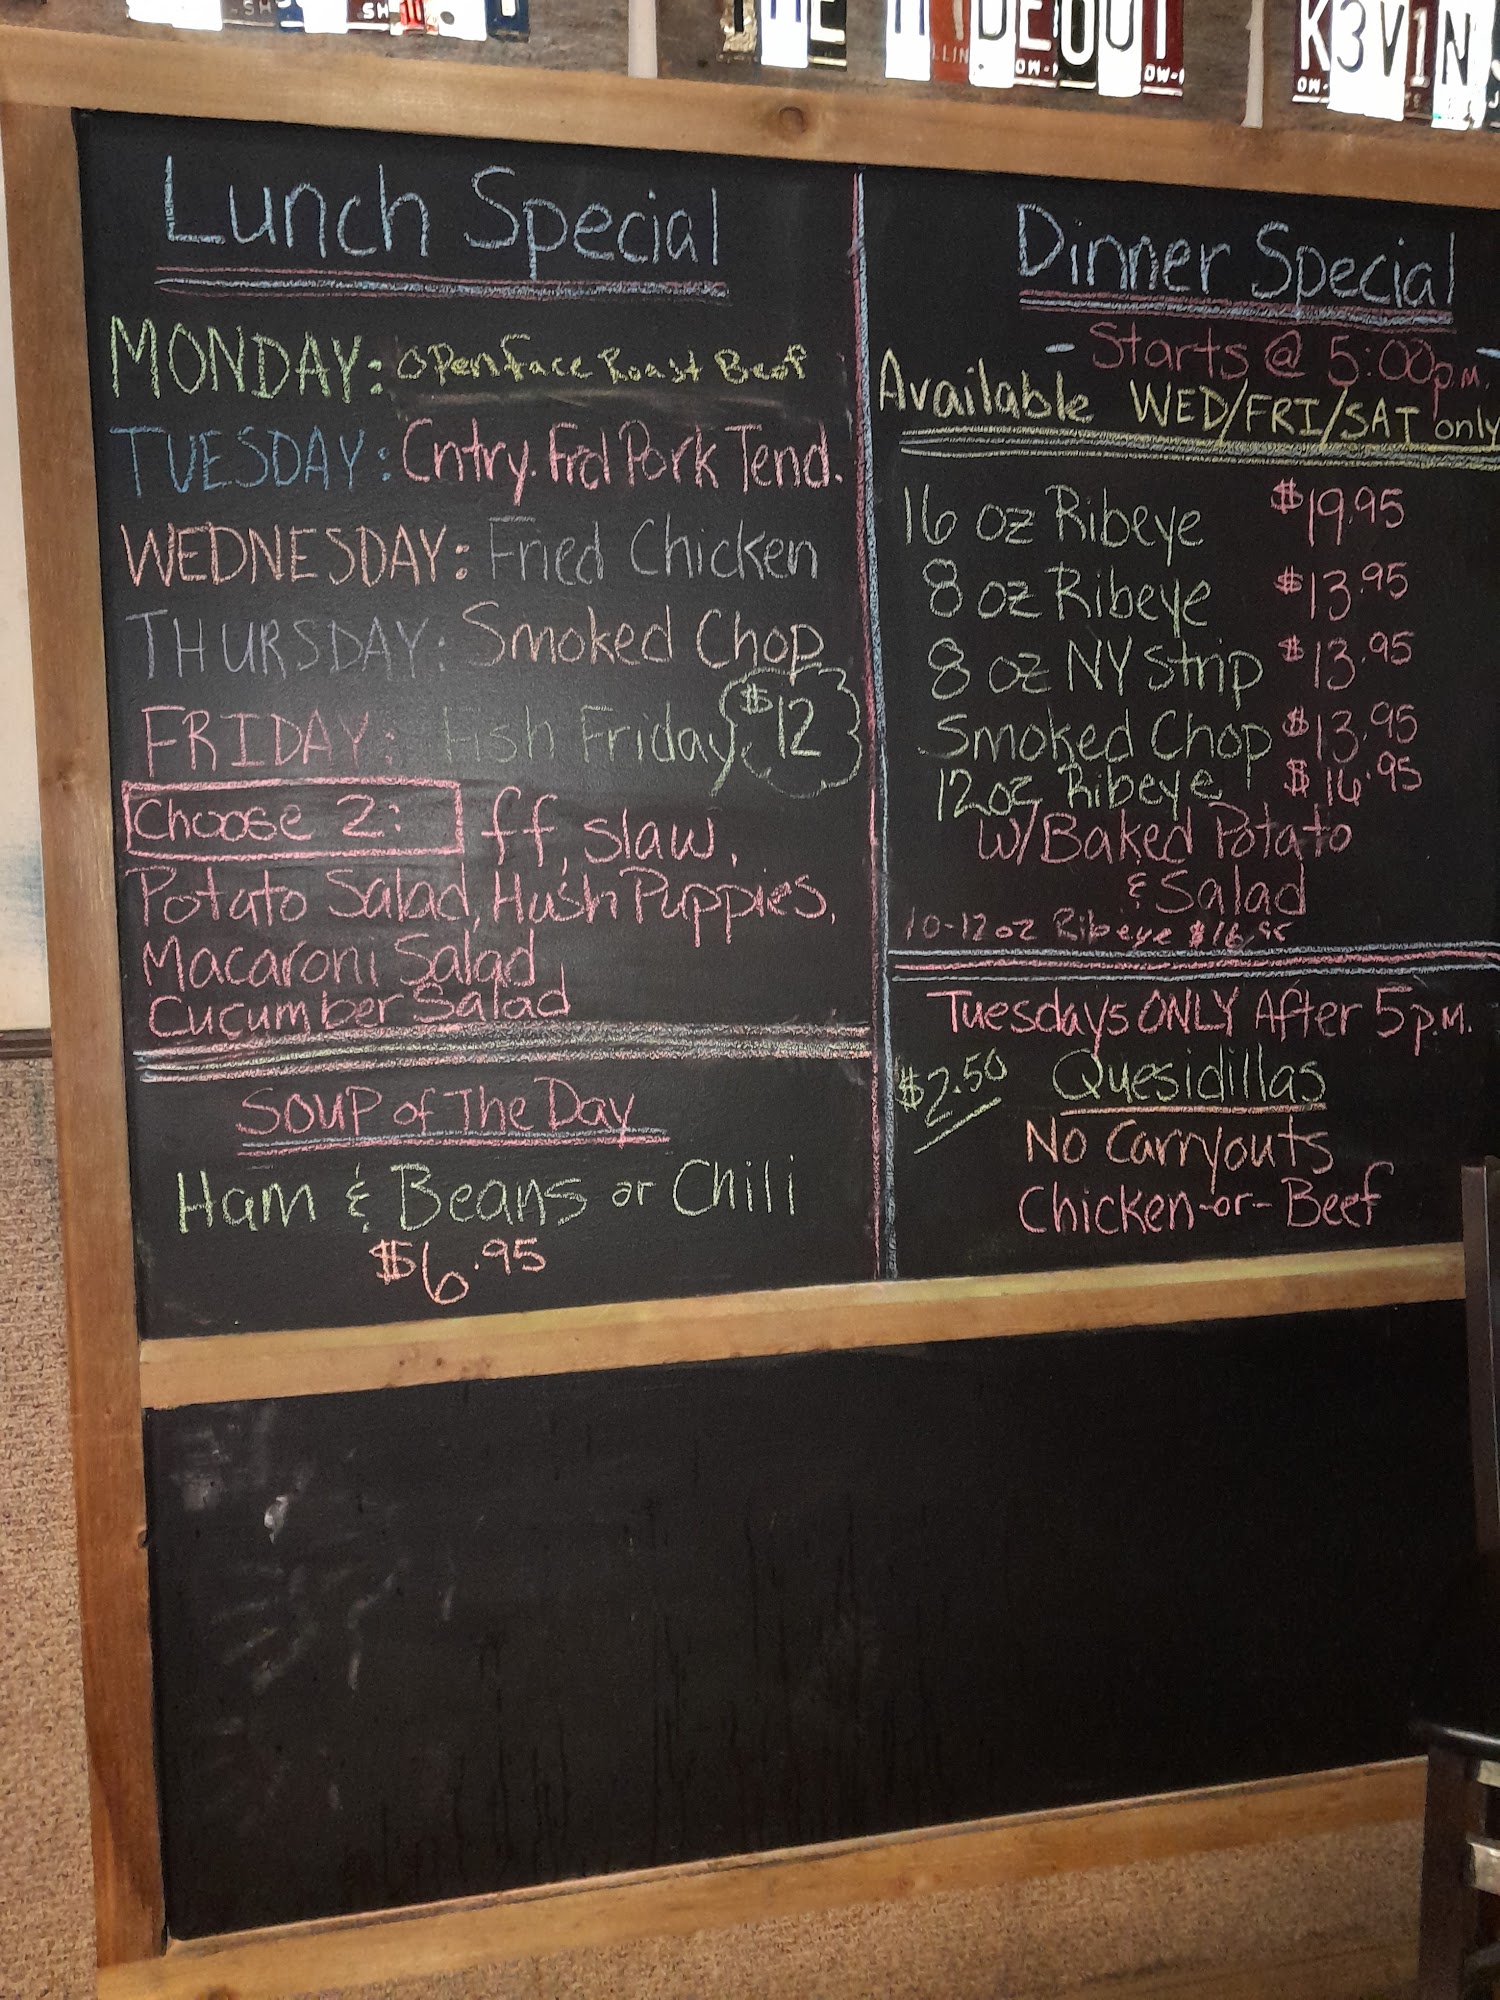 THE HIDEOUT
K3V1N
Lunch Special
MONDAY: Open Face Roast Beef
TUESDAY: Cntry. Frd Pork Tend.
WEDNESDAY: Fried Chicken
THURSDAY: Smoked Chop
FRIDAY: Fish Friday $12
Choose 2: ff, slaw,
Potato Salad, Hush Puppies,
Macaroni Salad,
Cucumber Salad
Soup of The Day
Ham & Beans or Chili
$6.95
Dinner Special
- Starts @ 5:00p.m. -
Available WED/FRI/SAT only
16 oz Ribeye $19.95
8 oz Ribeye $13.95
8 oz NY Strip $13.95
Smoked Chop $13.95
12oz Ribeye $16.95
w/Baked Potato
& Salad
10-12oz Ribeye $16.95
Tuesdays ONLY After 5p.m.
$2.50 Quesidillas
No Carryouts
Chicken-or-Beef